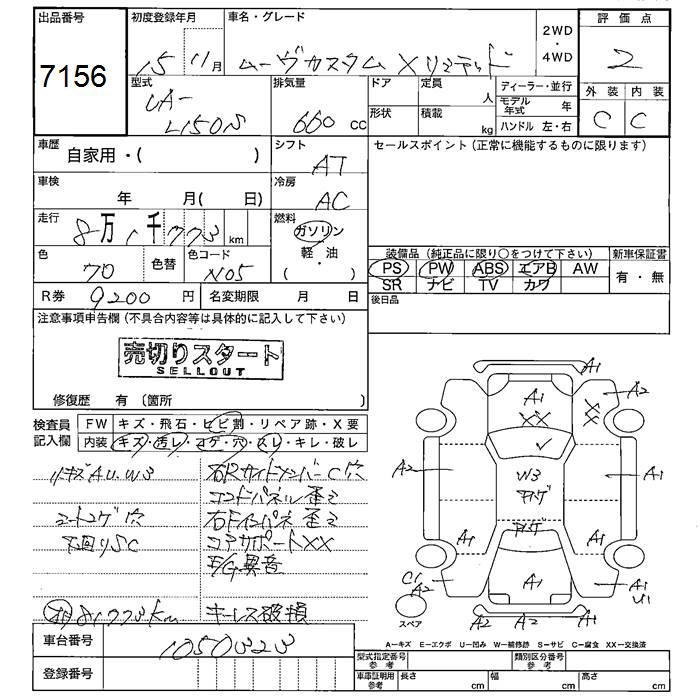 出品番号
7156
初度登録年月
15 11月
車名・グレード
ムーヴカスタム Xリミテッド
2WD
・
4WD
評価点
2
外装 内装
C C
型式
UA-
L150S
排気量
660 cc
ドア
形状
定員 人
積載 kg
ディーラー・並行
モデル年式 年
ハンドル 左・右
車歴
自家用・( )
シフト
AT
セールスポイント (正常に機能するものに限ります)
車検
年 月( 日)
冷房
AC
走行
8万1千773 km
燃料
ガソリン
・
軽・油
( )
色
70
色替
色コード
N05
装備品 (純正品に限り○をつけて下さい)
PS PW ABS エアB AW
SR ナビ TV カワ
新車保証書
有・無
R券 9200 円
名変期限 月 日
後日品
注意事項申告欄 (不具合内容等は具体的に記入して下さい)
売切りスタート
SELLOUT
修復歴 有 (箇所 )
検査員
記入欄
FW キズ・飛石・ヒビ割・リペア跡・X要
内装 キズ・汚レ・コゲ・穴・スレ・キレ・破レ
リキズA.U.W3
シートコゲ穴
下回りSC
81773km
右Rサイドメンバー C穴
コンドパネル 歪ミ
右Fインパネ 歪ミ
コアサポートXX
E/G異音
キーレス破損
A1
A2
A1
XX
XX
A2
W3
アゲ
A1
アゲ
A1
A1
C1
A2
A1
A1
U1
A2
A2
A1
スペア
A－キズ E－エクボ U－凹み W－補修跡 S－サビ C－腐食 XX－交換済
車台番号
1050323
登録番号
型式指定番号
参考
類別区分番号
参考
車庫証明用
参考
長さ cm
幅 cm
高さ cm